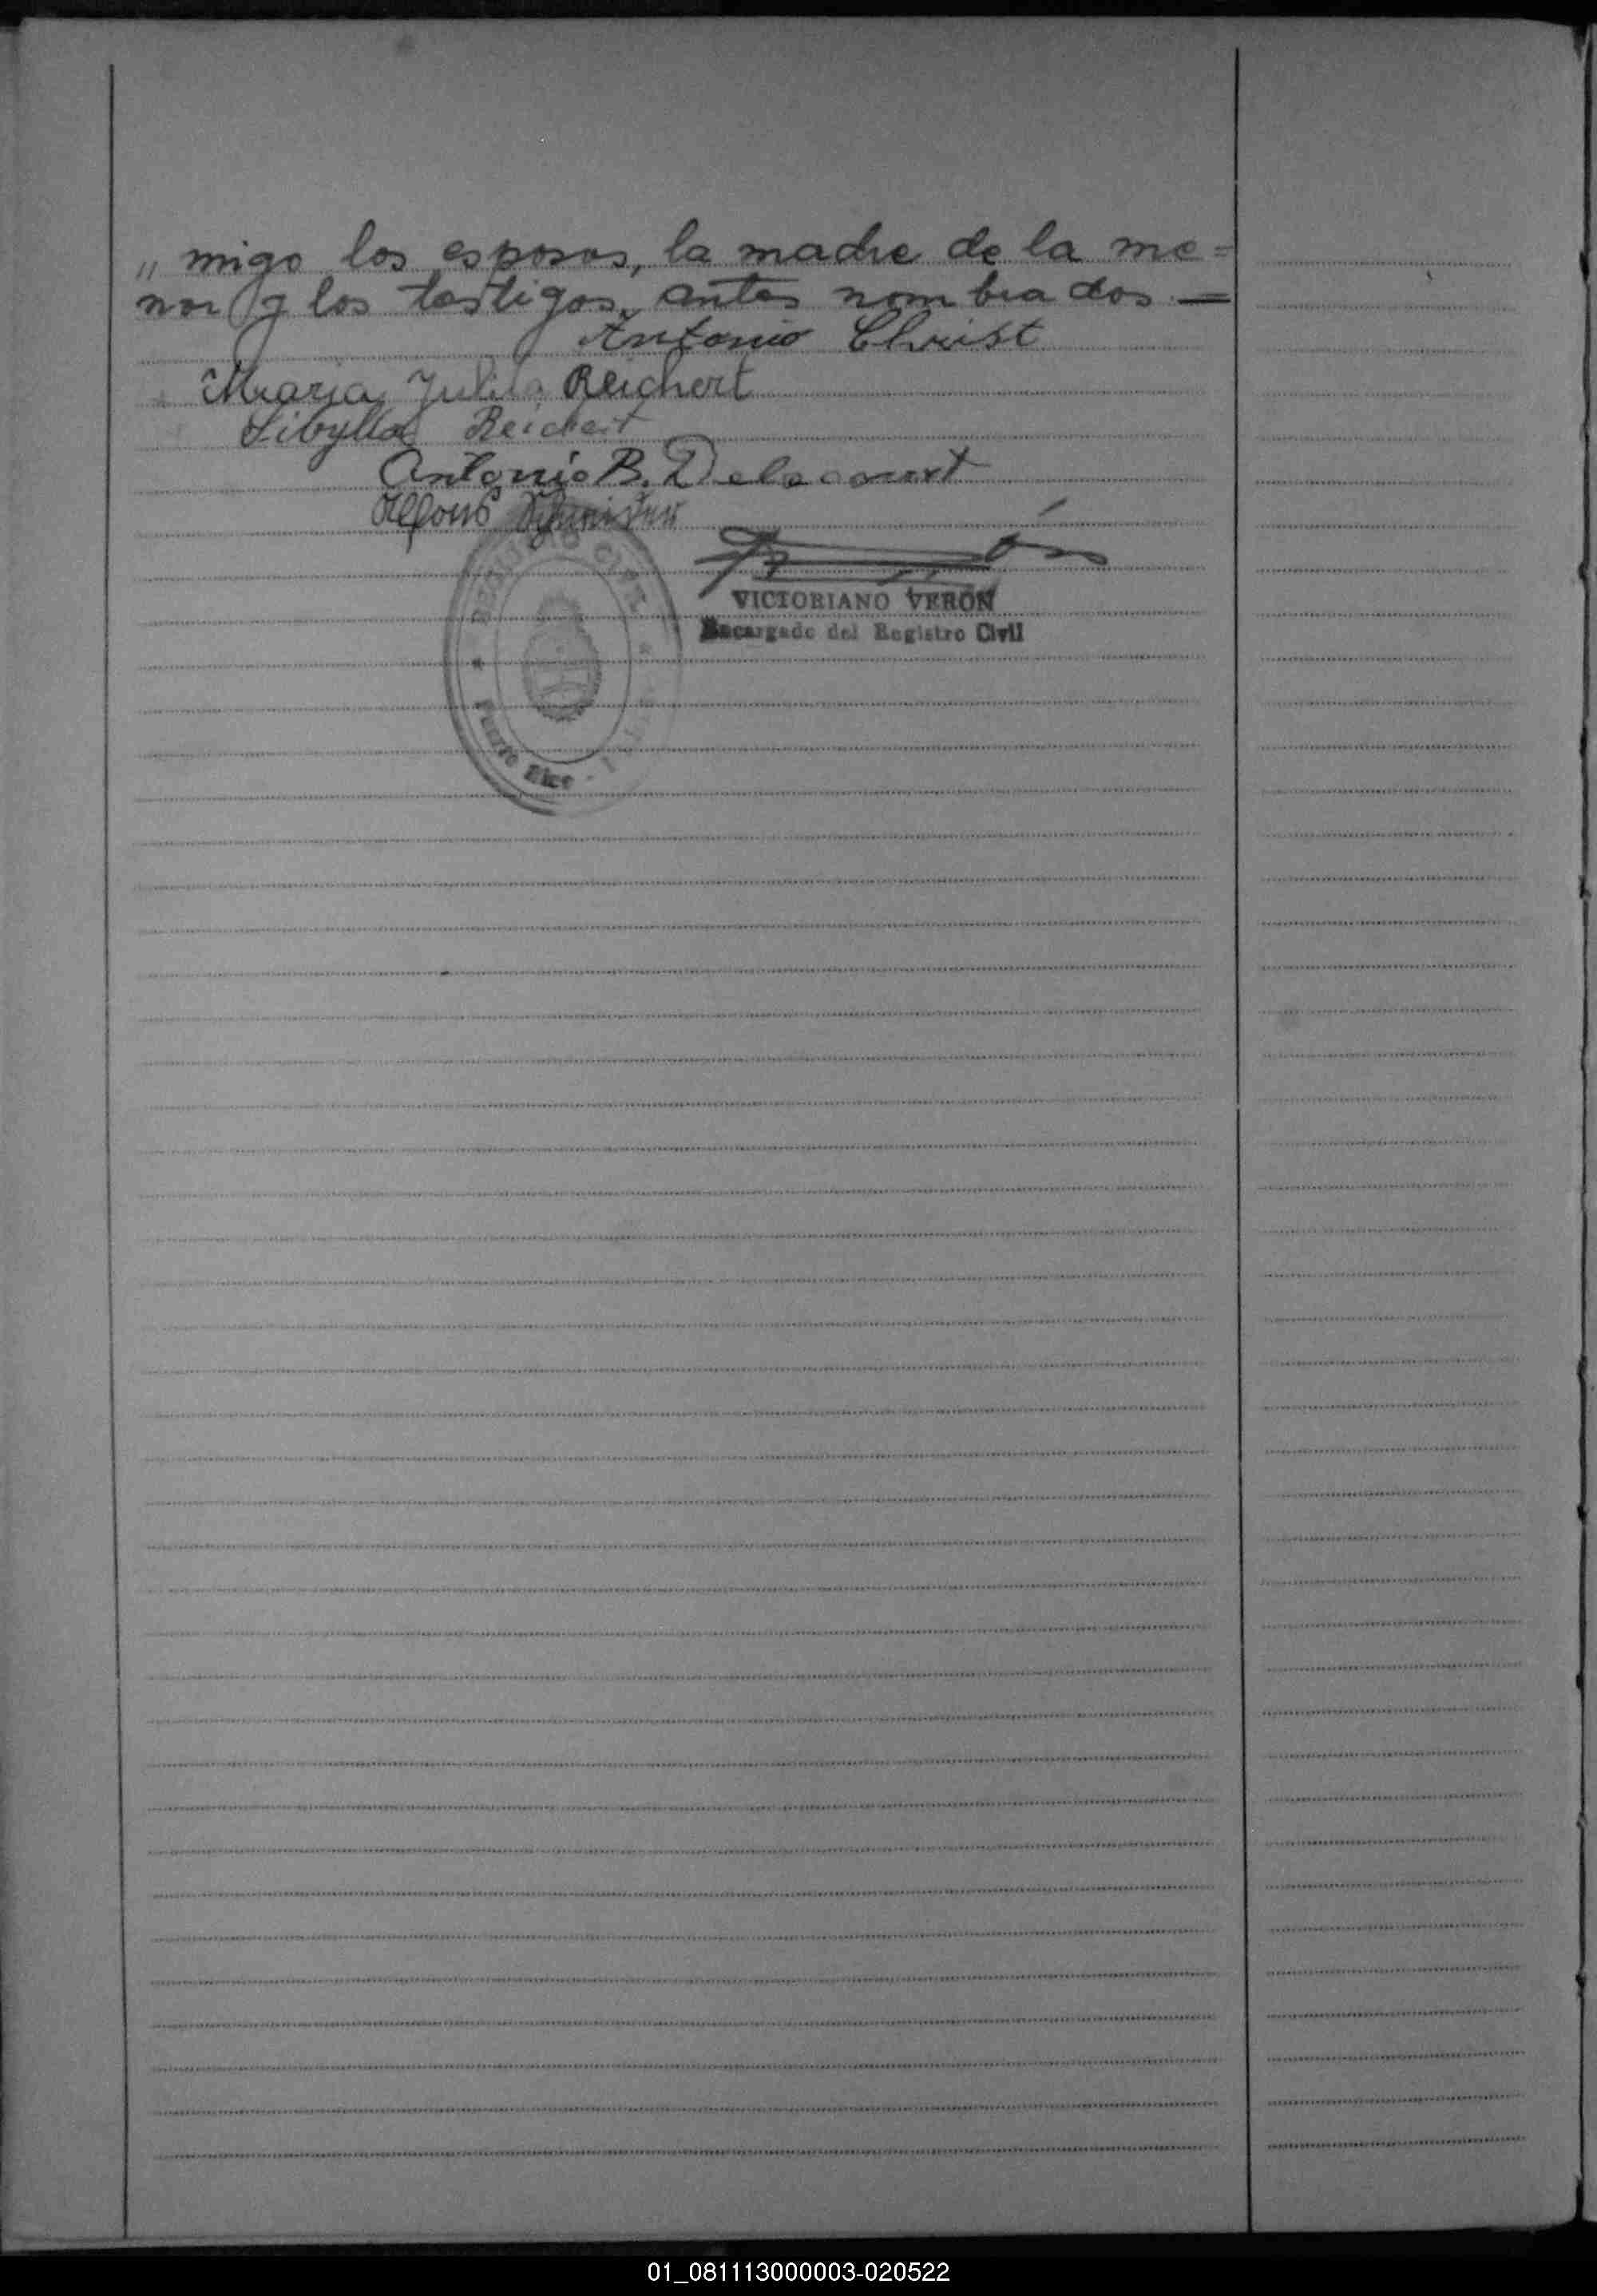 „ migo los esposos, la madre de la me=
nor y los testigos, antes nombrados =
Antonio Christ
Maria Julita Reichert
Sibylla Reichert
Antonio B. Delacourt
Alfons
VICTORIANO VERÓN
Encargado del Registro Civil
REGISTRO CIVIL
Puerto Rico
01_081113000003-020522